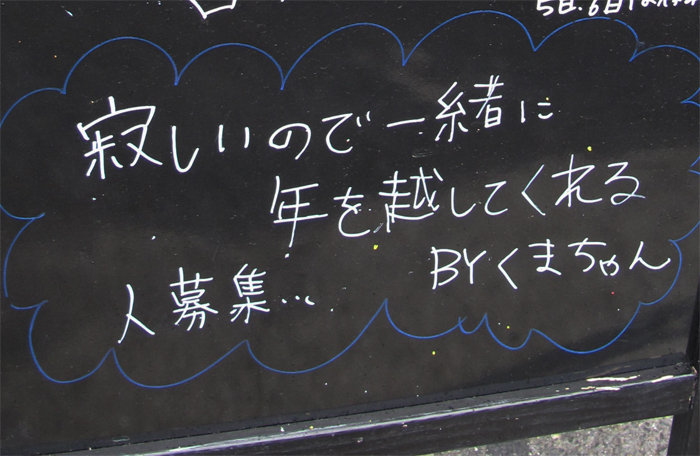 5日.6日
寂しいので一緒に
年を越してくれる
人募集...
BYくまちゃん